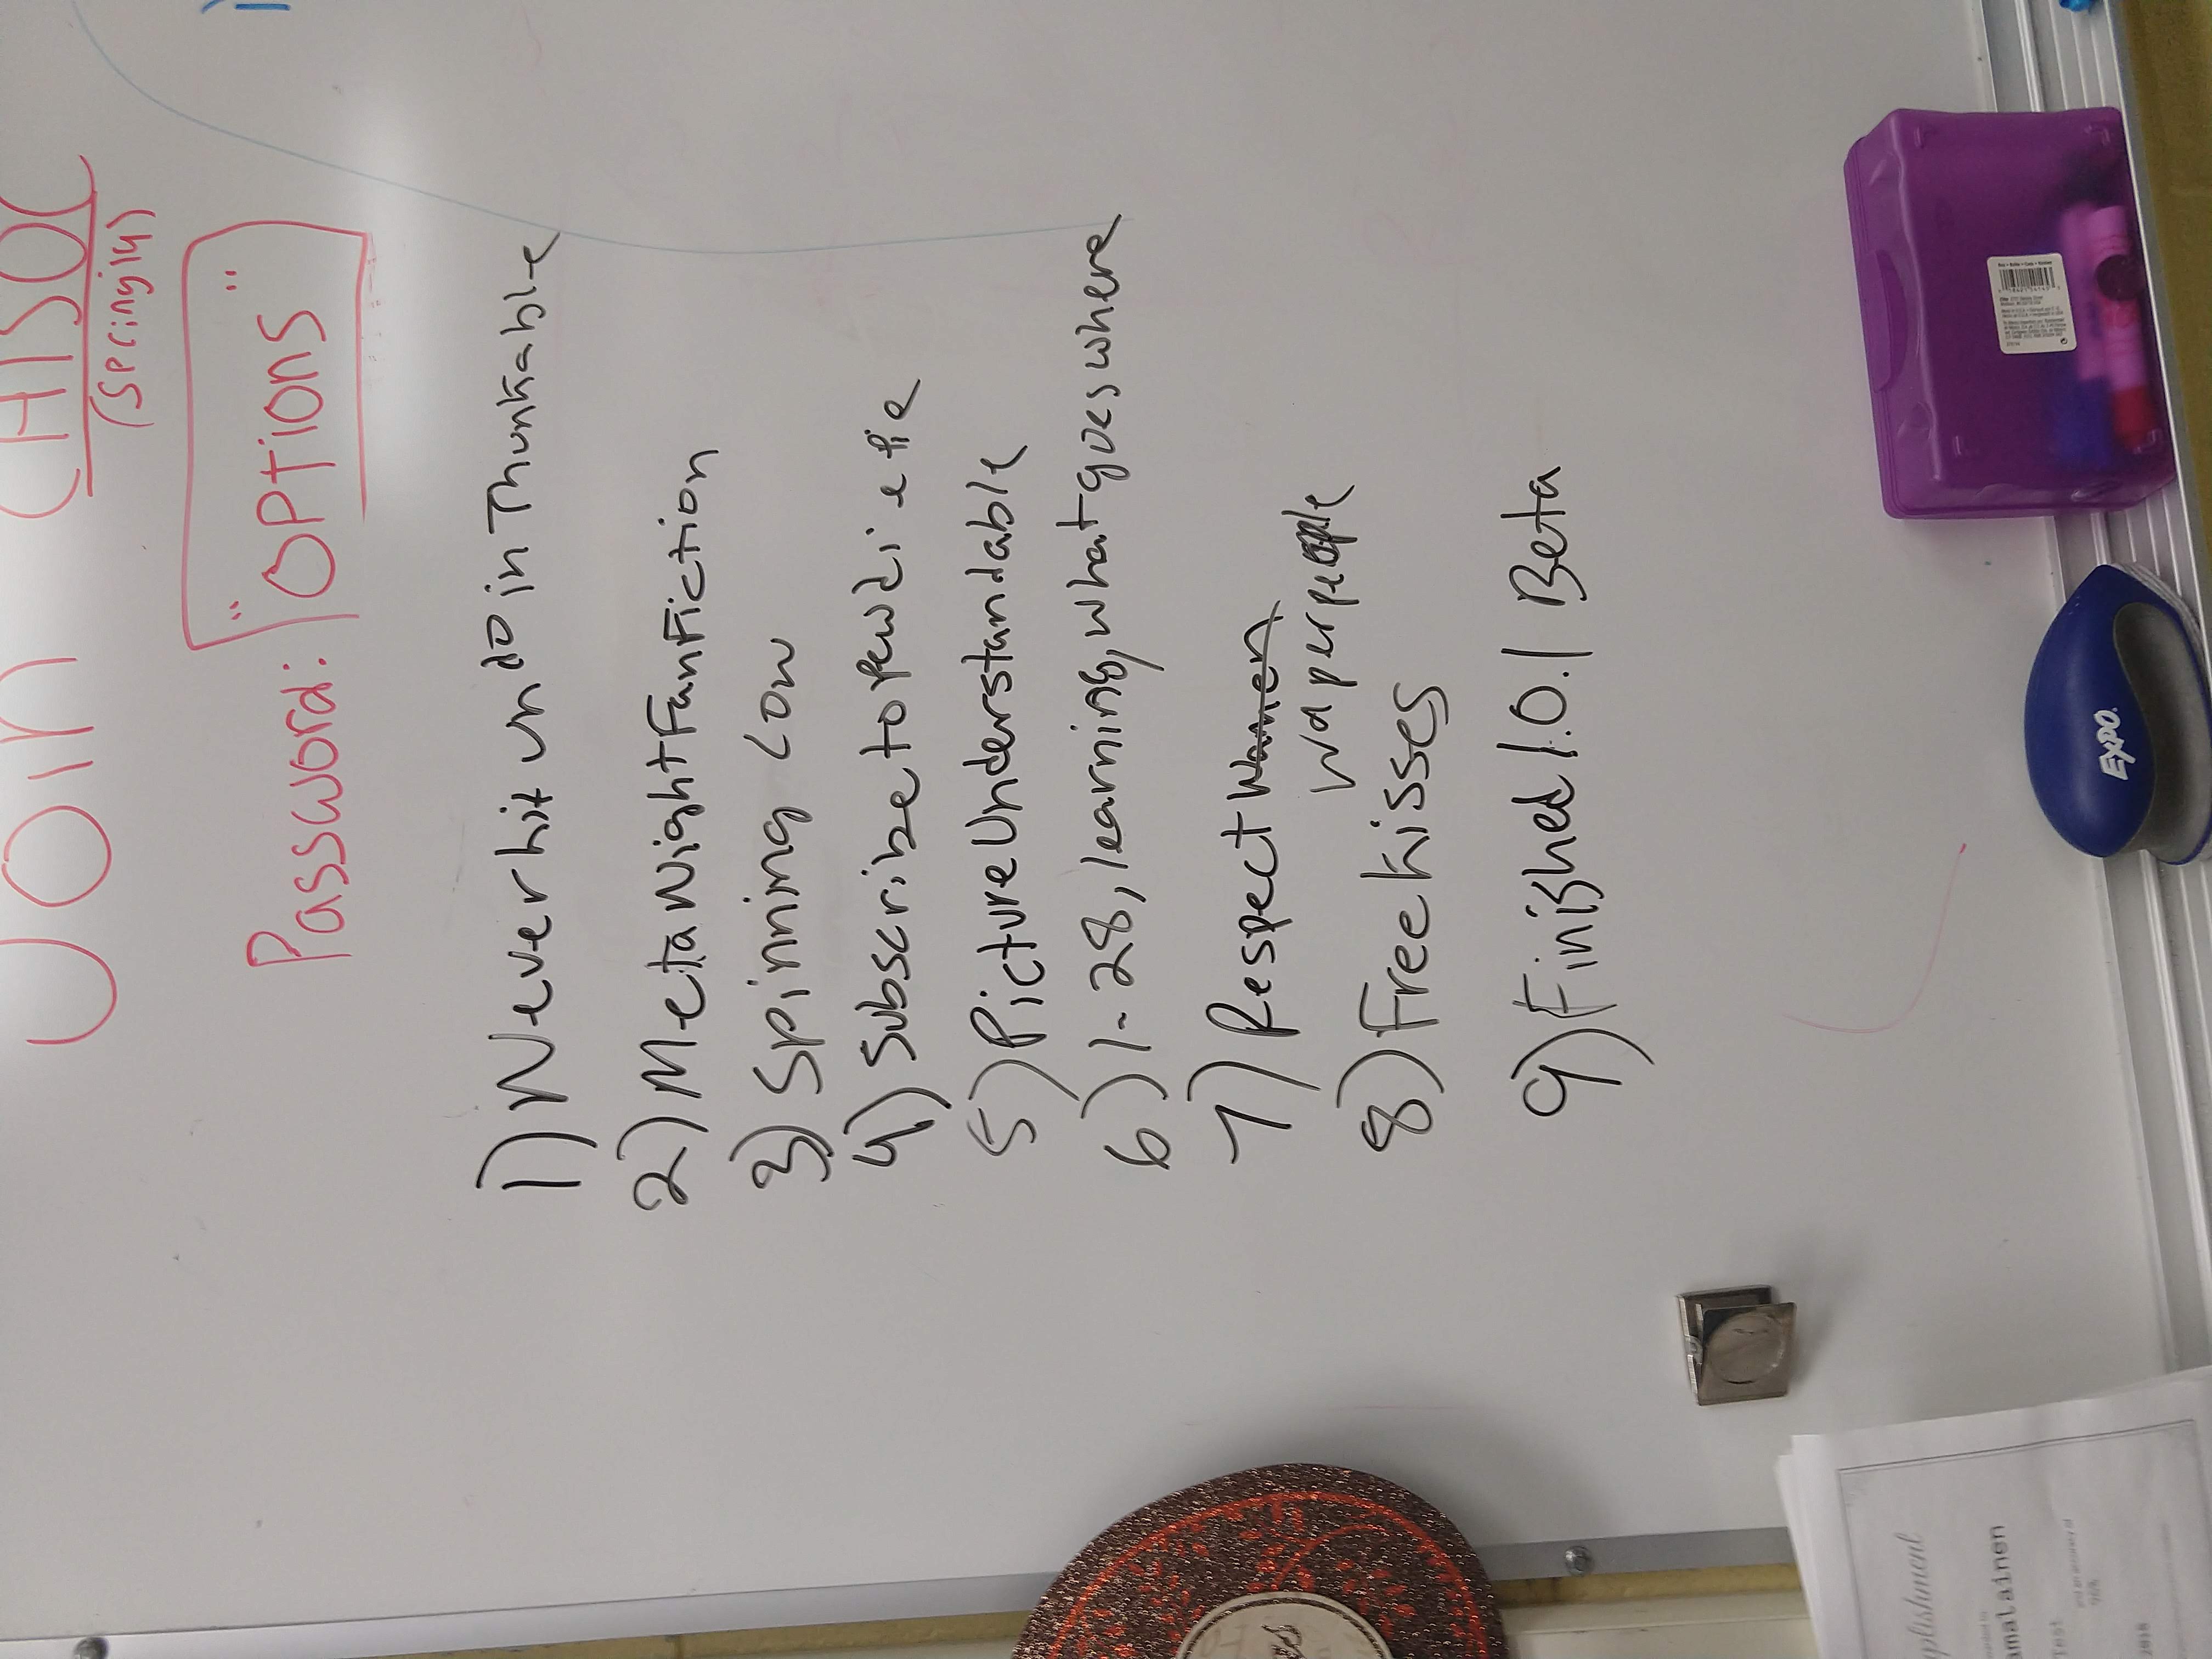 Join CHISOC
(Spring19)
Password: "Options"
1) Never hit undo in Thunkable
2) Meta Night FanFiction
3) Spinning Cow
4) Subscribe to Pewdiepie
5) Picture Understandable
6) 1-28, learning, what goes where
7) Respect Women
Waper people
8) Free kisses
9) Finished 1.0.1 Beta
plishment
amalainen
Test
and an accuracy of
96%
2018
EXPO